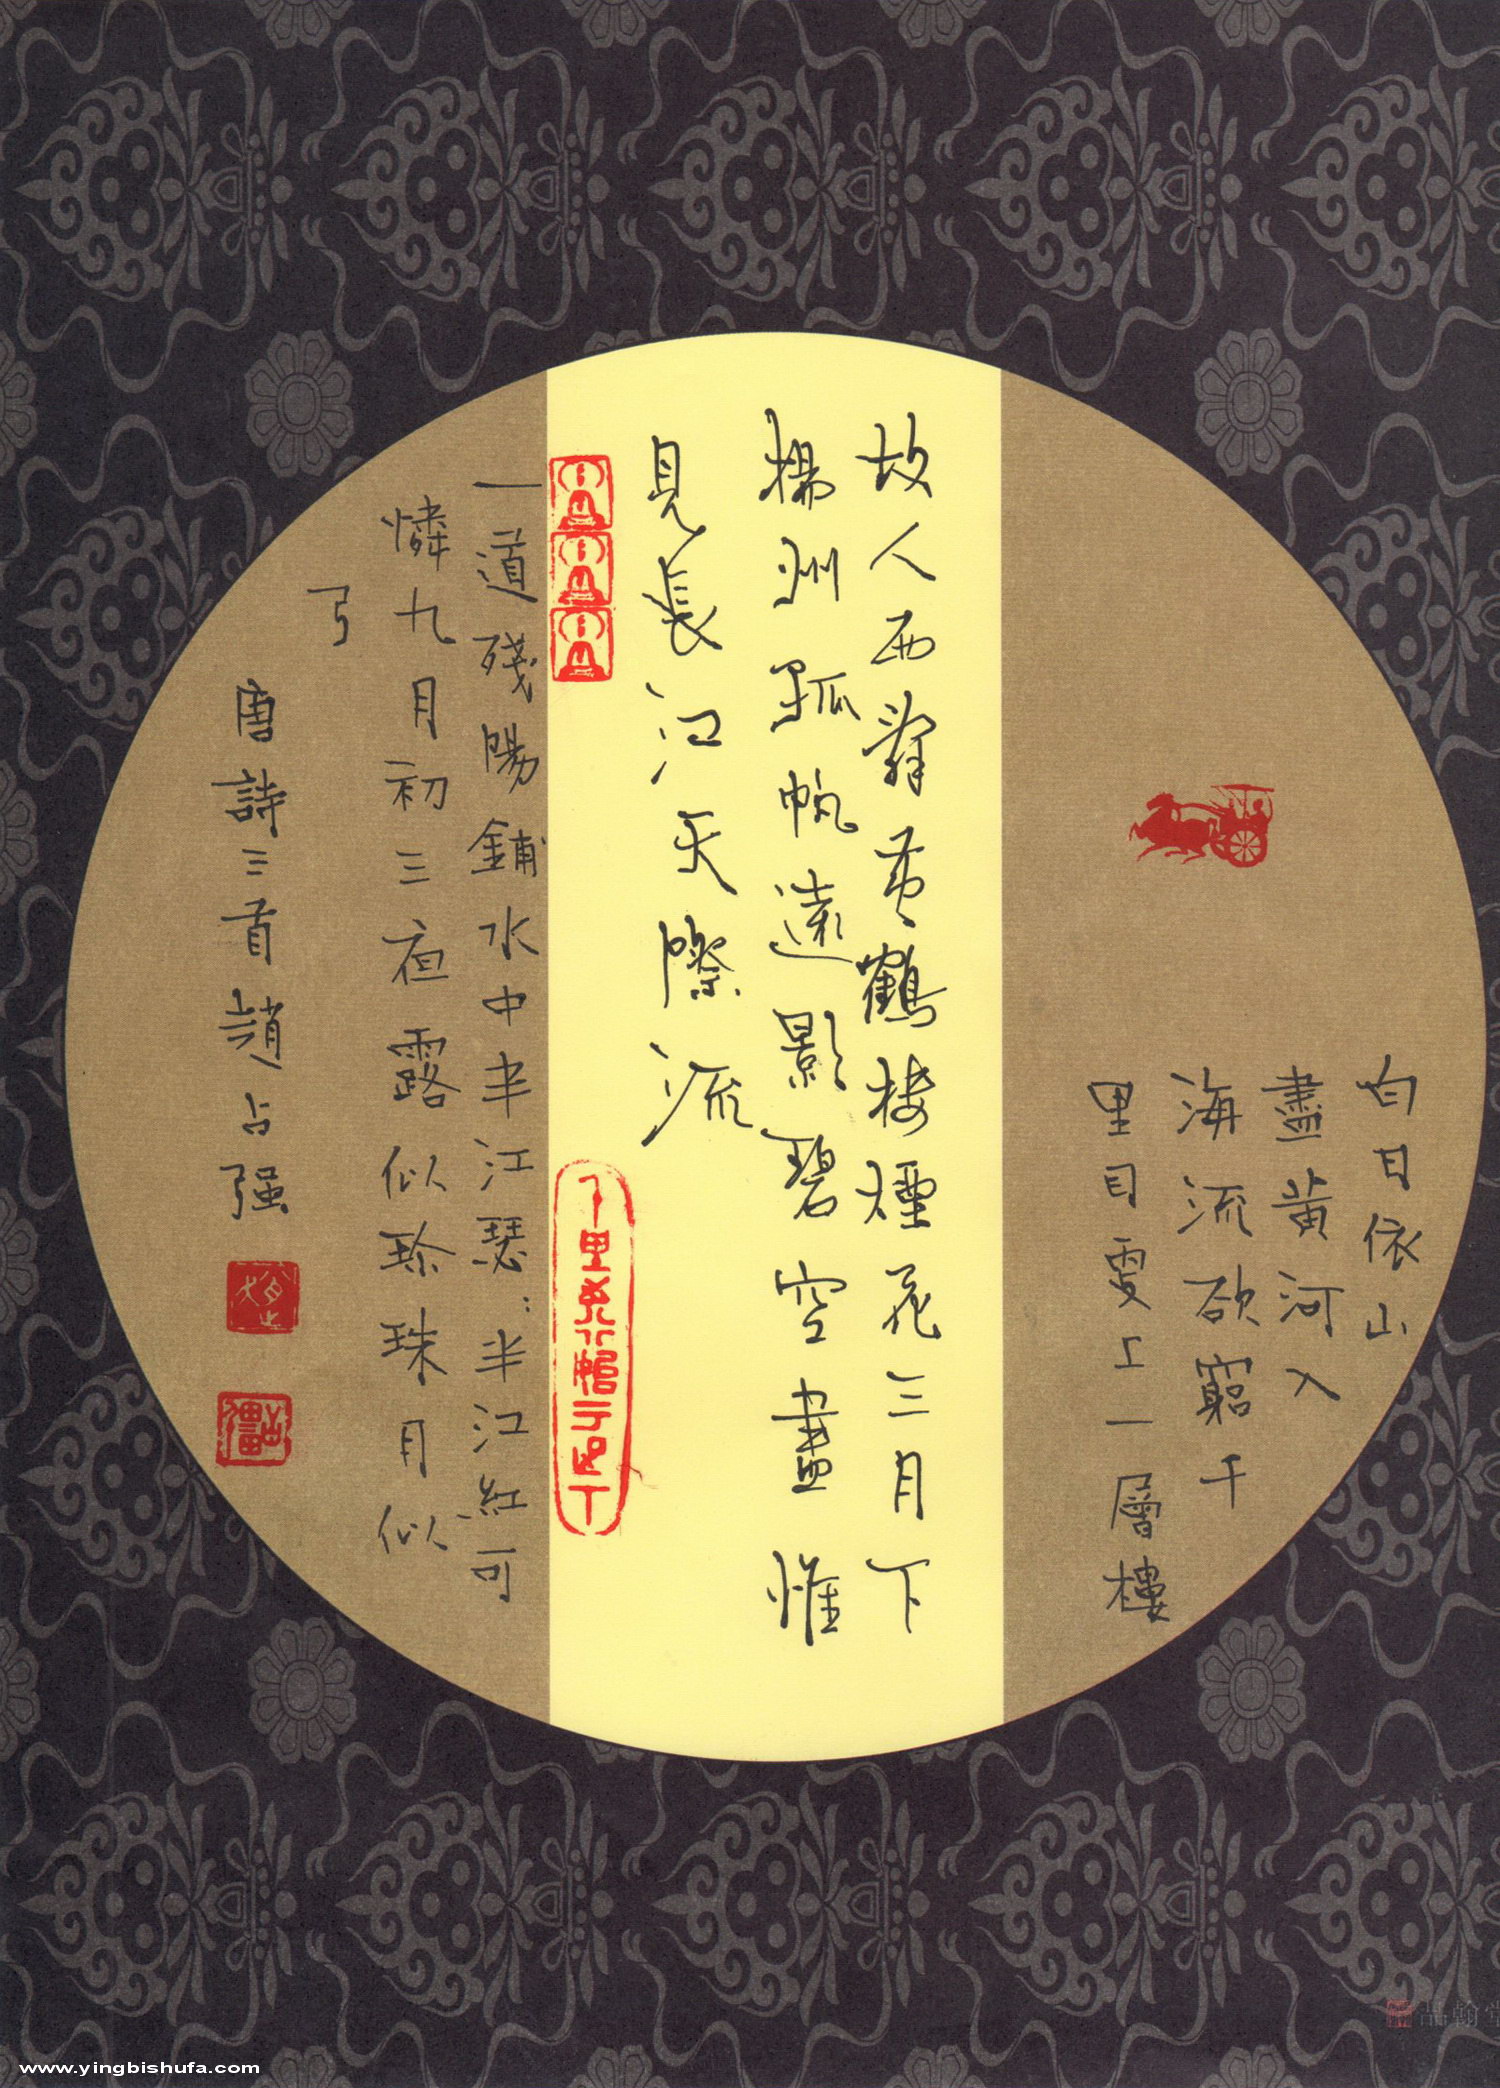 白日依山
盡黄河入
海流欲窮千
里目更上一層樓
故人西辭黄鶴楼煙花三月下
揚州孤帆遠影碧空盡惟
見長江天際流
一道殘陽鋪水中半江瑟:半江紅可
憐九月初三夜露似珍珠月似
弓
唐詩三首趙占强
品翰堂
www.yingbishufa.com